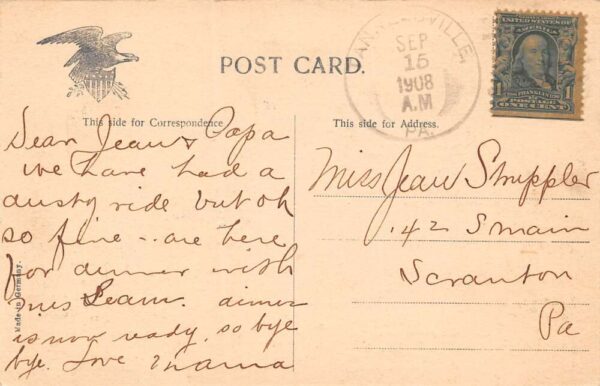 POST CARD.
ANNVILLE,
SEP
15
1908
A.M
PA.
1 FRANKLIN 1
POSTAGE
ONE CENT
This side for Correspondence
This side for Address.
Dear Jean & Papa
we have had a
dusty ride but oh
so fine - are here
for dinner with
dinner
is now ready, so bye
bye. Love Mama
Made in Germany.
Miss Jean Struppler
142 S main
Scranton
Pa